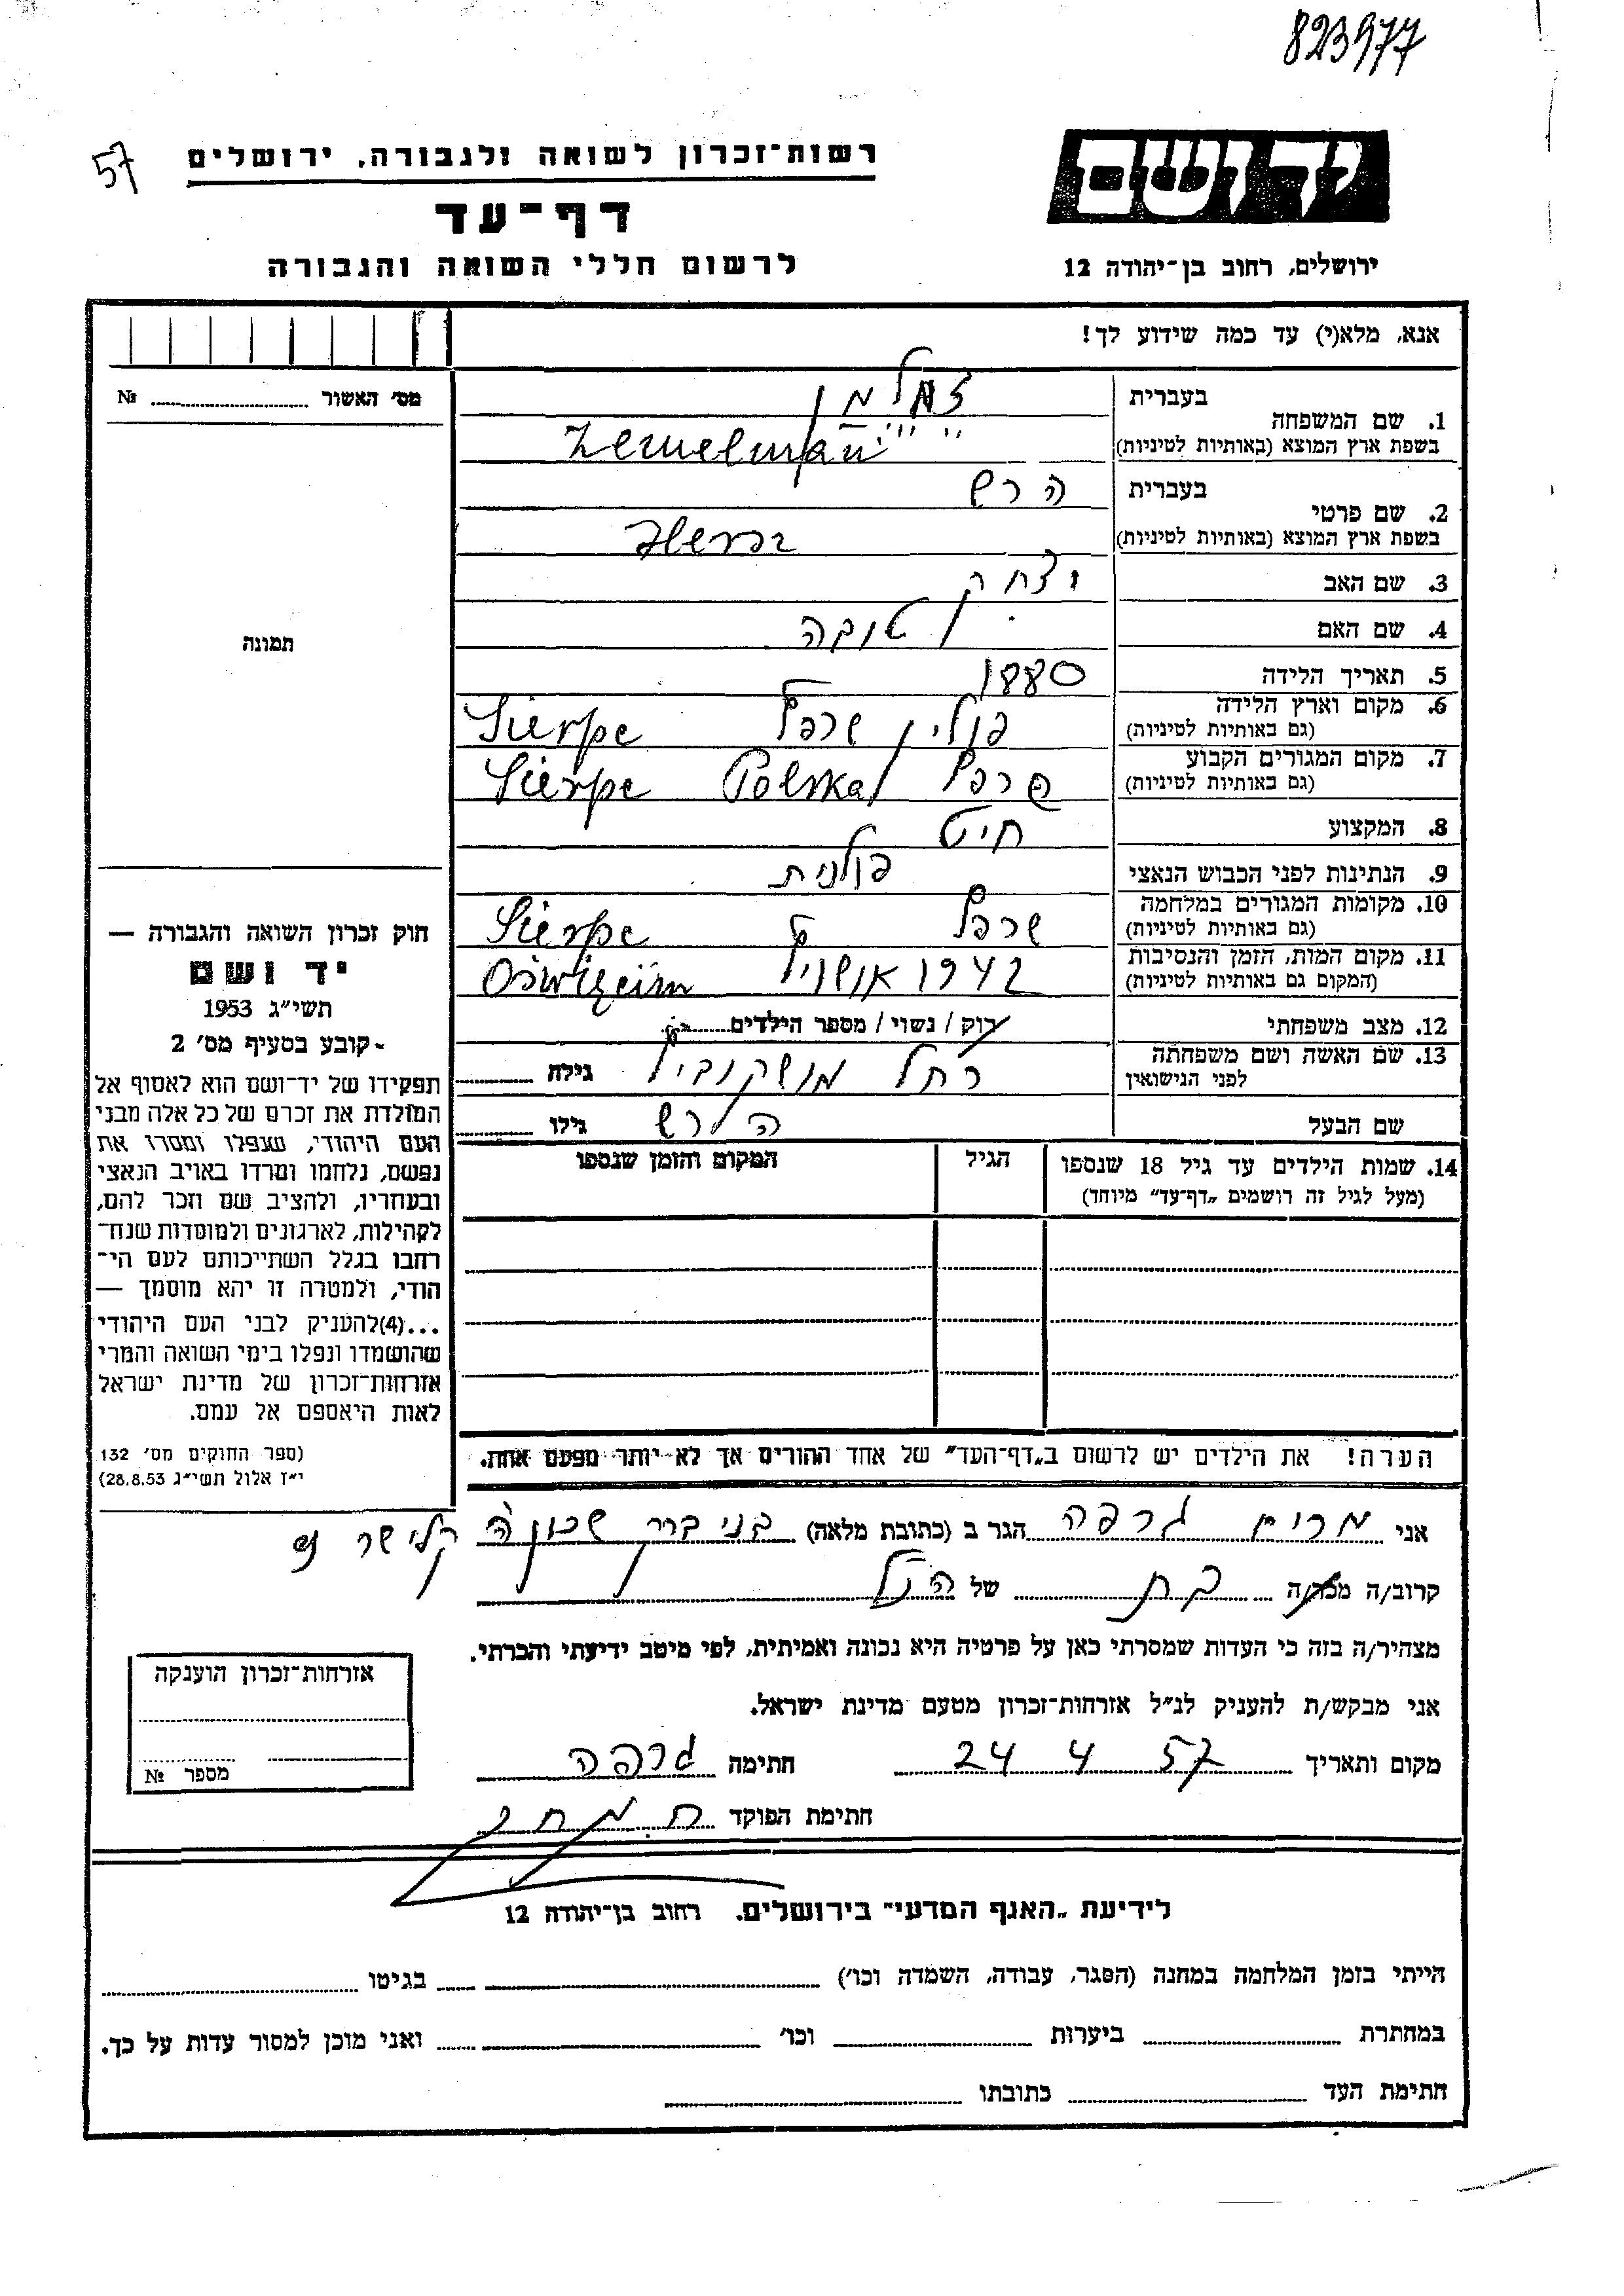 823977
57
רשות־זכרון לשואה ולגבורה, ירושלים
יד ושם
דף־עד
לרשום חללי השואה והגבורה
ירושלים, רחוב בן־יהודה 12
אנא, מלא(י) עד כמה שידוע לך!
מס׳ האשור № 
1. שם המשפחה
בעברית
בשפת ארץ המוצא (באותיות לטיניות)
Zemelman
2. שם פרטי
בעברית הרש
בשפת ארץ המוצא (באותיות לטיניות) Hersz
3. שם האב יצחק
4. שם האם טובה
5. תאריך הלידה 1880
6. מקום וארץ הלידה פולין שרפץ Sierpc
(גם באותיות לטיניות)
7. מקום המגורים הקבוע שרפץ Polska Sierpc
(גם באותיות לטיניות)
8. המקצוע חיט
9. הנתינות לפני הכבוש הנאצי פולנית
10. מקומות המגורים במלחמה שרפץ Sierpc
(גם באותיות לטיניות)
11. מקום המות, הזמן והנסיבות 1942
(המקום גם באותיות לטיניות)
12. מצב משפחתי רוק / נשוי / מספר הילדים
13. שם האשה ושם משפחתה רחל מושקוביץ גילה
לפני הנישואין
שם הבעל הרש גילו
14. שמות הילדים עד גיל 18 שנספו הגיל המקום והזמן שנספו
(מעל לגיל זה רושמים „דף־עד” מיוחד)
הערה! את הילדים יש לרשום ב„דף־העד” של אחד ההורים אך לא יותר מפעם אחת.
תמונה
חוק זכרון השואה והגבורה —
יד ושם
תשי״ג 1953
קובע בסעיף מס׳ 2
תפקידו של יד־ושם הוא לאסוף אל
המולדת את זכרם של כל אלה מבני
העם היהודי, שנפלו ומסרו את
נפשם, נלחמו ומרדו באויב הנאצי
ובעוזריו, ולהציב שם וזכר להם,
לקהילות, לארגונים ולמוסדות שנח־
רבו בגלל השתייכותם לעם הי־
הודי, ולמטרה זו יהא מוסמך —
...(4)להעניק לבני העם היהודי
שהושמדו ונפלו בימי השואה והמרי
אזרחות־זכרון של מדינת ישראל
לאות היאספם אל עמם.
(ספר החוקים מס׳ 132
י״ז אלול תשי״ג 28.8.53)
אני מרים גרפה הגר ב (כתובת מלאה) בני ברק שכונה
קרוב/ה מכר/ה בת של הנ״ל
מצהיר/ה בזה כי העדות שמסרתי כאן על פרטיה היא נכונה ואמיתית, לפי מיטב ידיעתי והכרתי.
אני מבקש/ת להעניק לנ״ל אזרחות־זכרון מטעם מדינת ישראל.
מקום ותאריך 24 4 57 חתימה גרפה
חתימת הפוקד
אזרחות־זכרון הוענקה
מספר №
לידיעת „האגף המדעי” בירושלים, רחוב בן־יהודה 12
הייתי בזמן המלחמה במחנה (הסגר, עבודה, השמדה וכו׳) בגיטו
במחתרת ביערות וכו׳ ואני מוכן למסור עדות על כך.
חתימת העד כתובתו